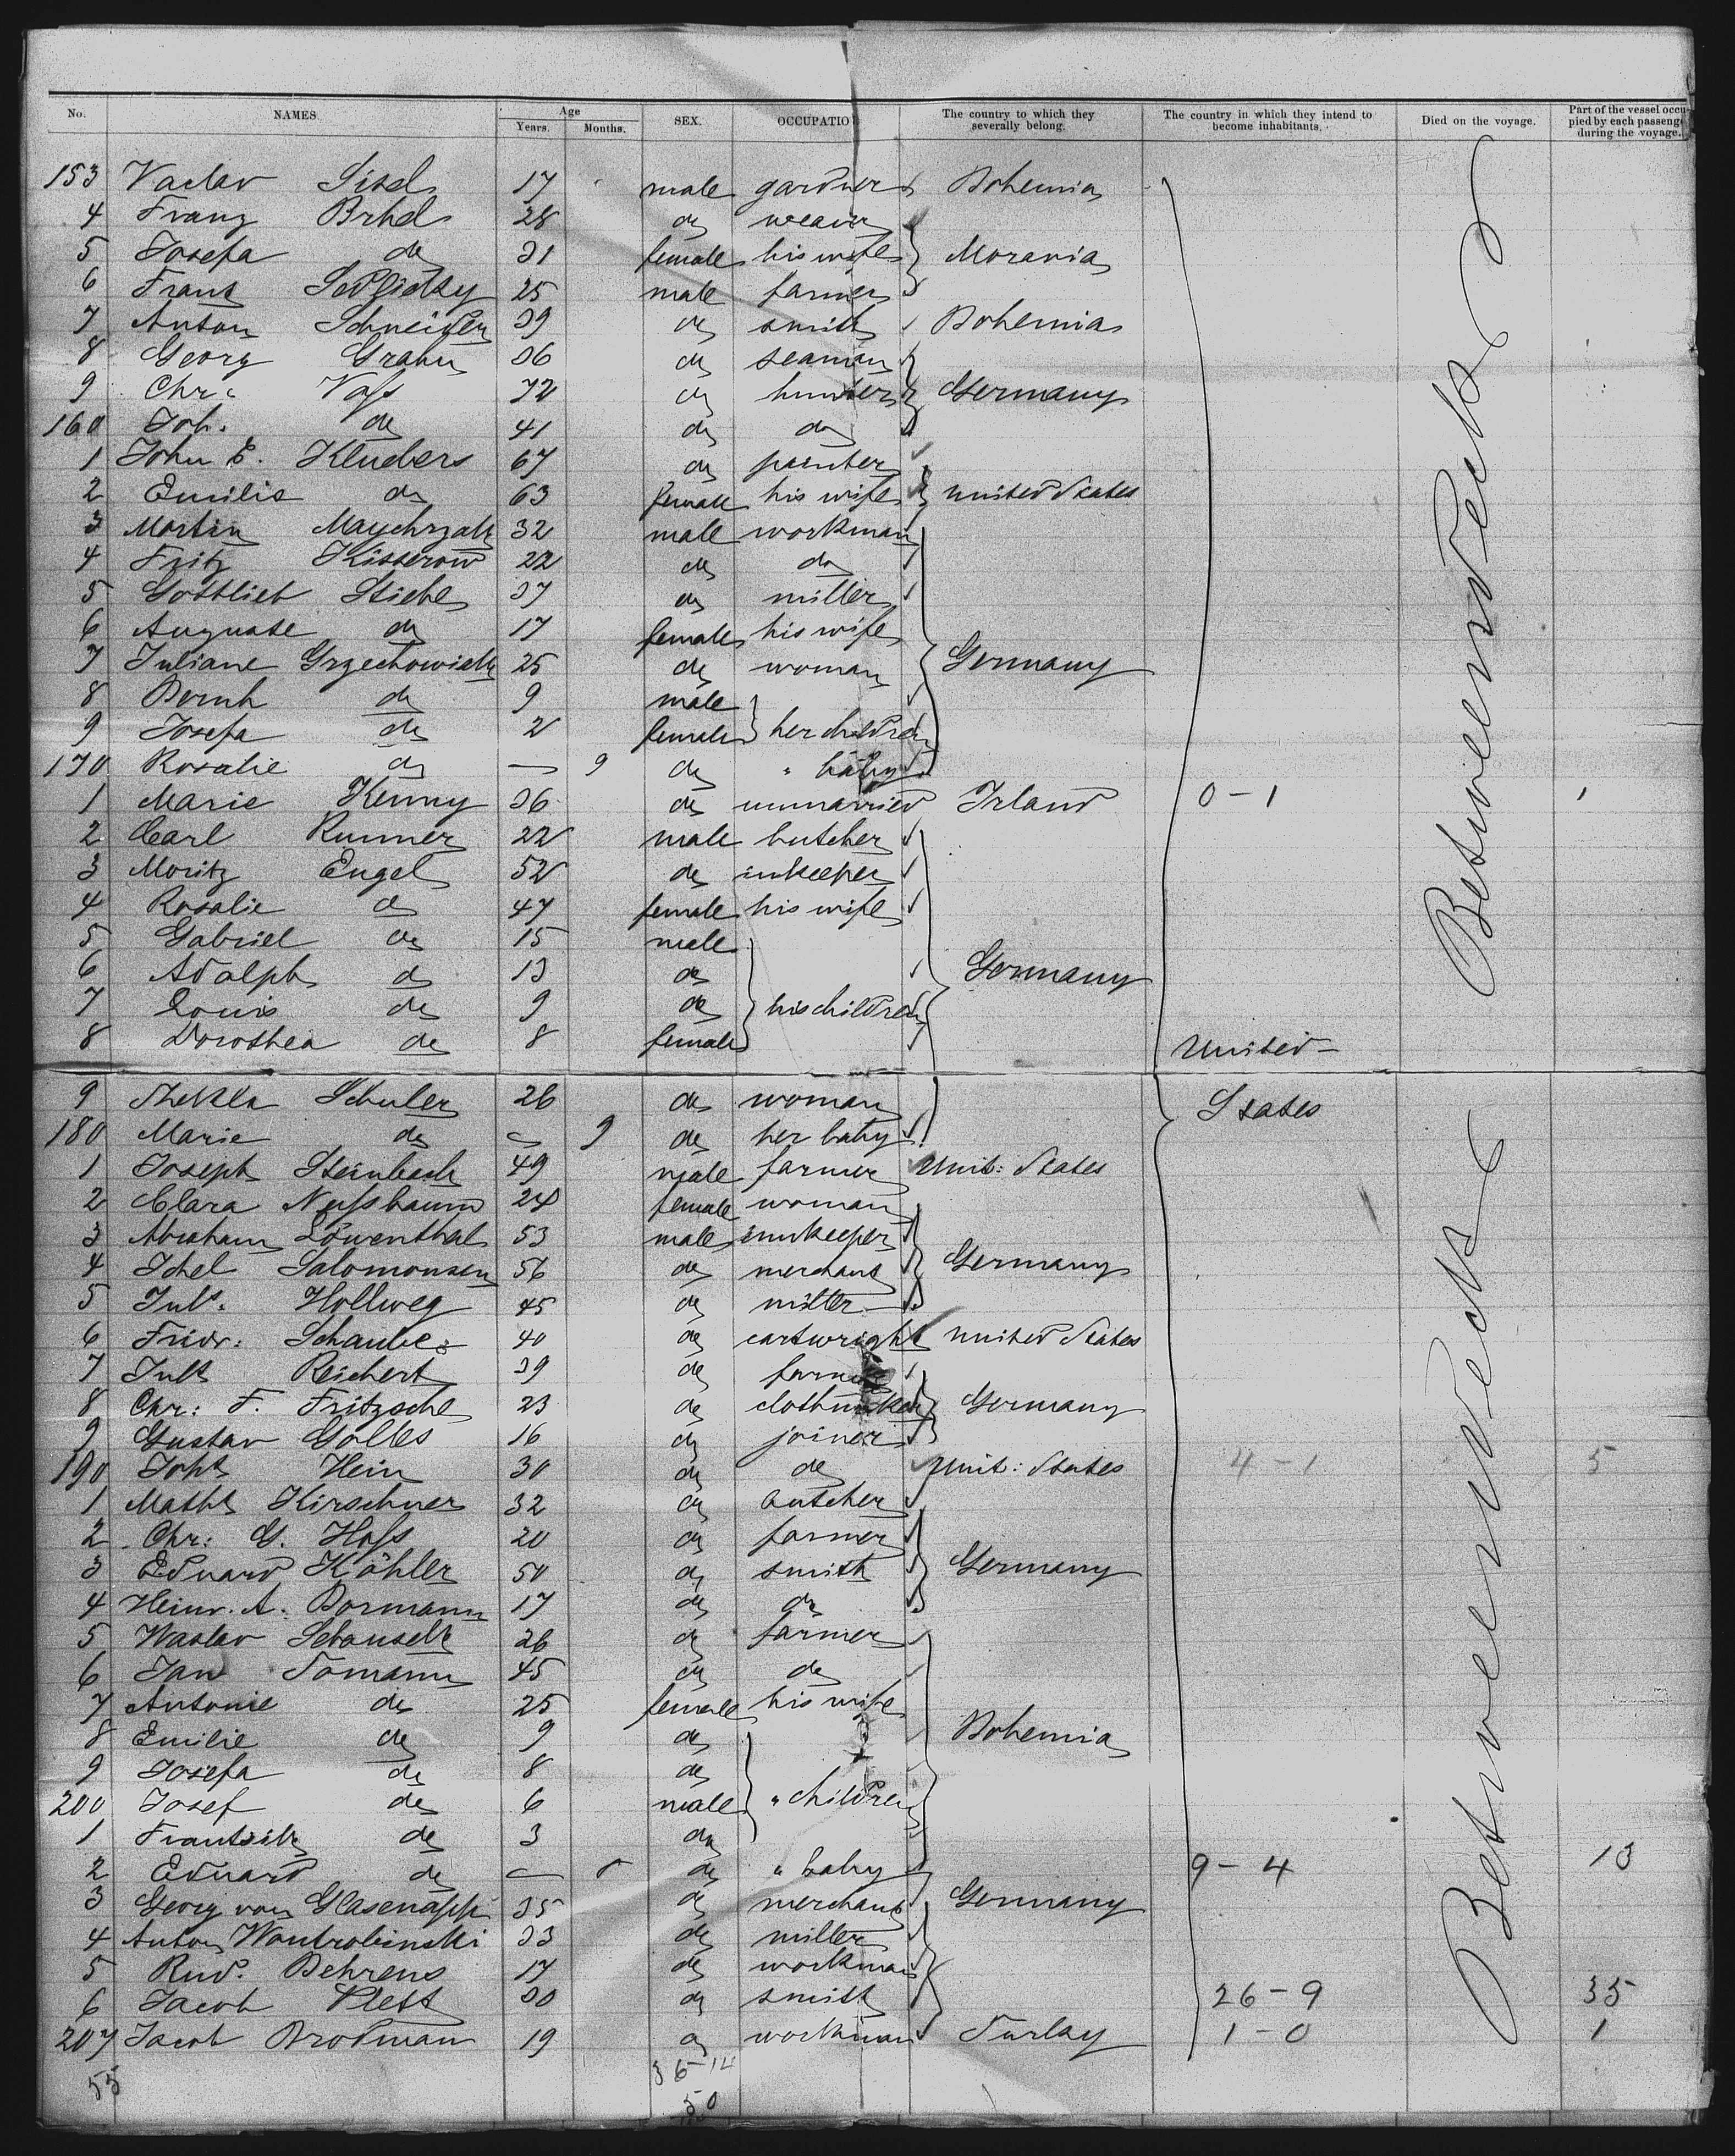 No. NAMES. Age Years. Months. SEX. OCCUPATIO The country to which they severally belong. The country in which they intend to become inhabitants. Died on the voyage. Part of the vessel occupied by each passenge during the voyage.
153 Vaclav Sisel 17 male gardner Bohemia
4 Franz Brhel 28 do weaver
5 Josefa do 31 female his wife Moravia
6 Franz 25 male farmer
7 Anton Schneider 39 do smith Bohemia
8 Georg Grahn 36 do seaman
9 Chr: Voss 72 do hunter Germany
160 Joh. do 41 do do
1 John E. Kluders 67 do painter
2 Emilie do 63 female his wife united States
3 Martin Maychrzak 32 male workman
4 Fritz Kisserow 22 do do
5 Gottlieb Stiehl 37 do miller
6 Auguste do 17 female his wife
7 Juliane Grzechowiak 25 do woman Germany
8 Bernh do 9 male
9 Josefa do 2 female her children
170 Rosalie do — 9 do " baby
1 Marie Kenny 36 do unmarried Irland 0-1 1
2 Carl Rummer 22 male butcher
3 Moritz Engel 52 do inkeeper
4 Rosalie do 47 female his wife
5 Gabriel do 15 male
6 Adalph do 13 do Germany
7 Louis do 9 do his children
8 Dorothea do 8 female United-
Between deck
9 Thekla Schuler 26 do woman States
180 Marie do — 9 do her baby
1 Joseph Steinbach 49 male farmer Unit: States
2 Clara Nussbaum 24 female woman
3 Abraham Löwenthal 53 male innkeeper
4 Ichel Salomonsen 56 do merchant Germany
5 Juls. Hollweg 45 do miller
6 Fridr: Schaube 40 do cartwright united States
7 Juls Reichert 39 do farmer
8 Chr: F. Fritzsche 23 do clothmaker Germany
9 Gustav Golles 16 do joiner
190 Johs Hein 30 do do Unit: States 4-1 5
1 Maths Kirschner 32 do butcher
2 Chr: G. Hass 20 do farmer
3 Eduard Köhler 50 do smith Germany
4 Heinr. A. Bormann 17 do do
5 Waslav 26 do farmer
6 Jan Tomann 45 do do
7 Antonie do 25 female his wife
8 Emilie do 9 do Bohemia
9 Josefa do 8 do
200 Josef do 6 male " children
1 Frantisek do 3 do
2 Eduard do — do " baby 9-4 13
3 Georg von Glasenapp 35 do merchant Germany
4 Anton Wontrobinski 33 do miller
5 Rud. Behrens 17 do workman
6 Jacob Plett 30 do smith 26-9 35
207 Jacob Brodman 19 do workman Turkey 1-0 1
Between deck
55 36-14
50